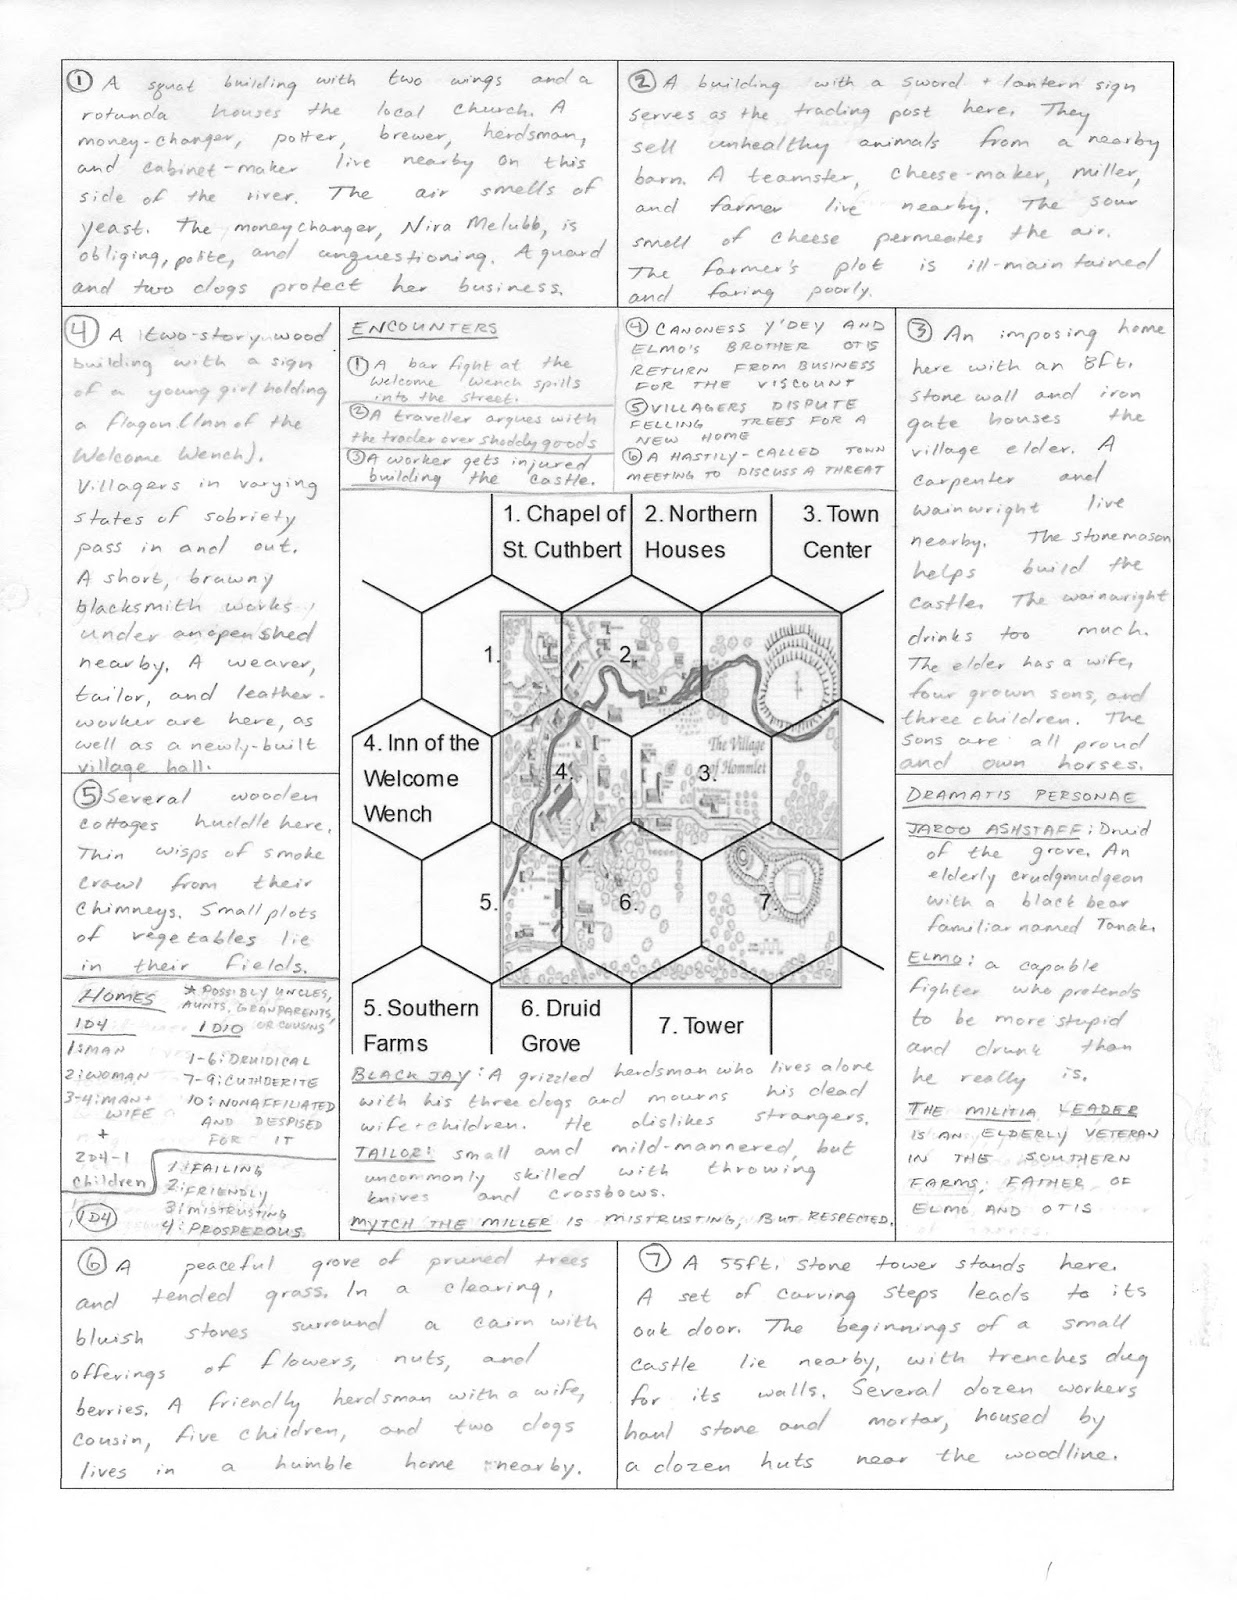 ① A squat building with two wings and a
rotunda houses the local church. A
money-changer, potter, brewer, herdsman,
and cabinet-maker live nearby on this
side of the river. The air smells of
yeast. The moneychanger, Nira Melubb, is
obliging, polite, and unquestioning. A guard
and two dogs protect her business.
② A building with a sword + lantern sign
serves as the trading post here. They
sell unhealthy animals from a nearby
barn. A teamster, cheese-maker, miller,
and farmer live nearby. The sour
smell of cheese permeates the air.
The farmer's plot is ill-maintained
and faring poorly.
④ A two-story wood
building with a sign
of a young girl holding
a flagon (Inn of the
Welcome Wench).
Villagers in varying
states of sobriety
pass in and out.
A short, brawny
blacksmith works
under an open shed
nearby. A weaver,
tailor, and leather-
worker are here, as
well as a newly-built
village hall.
ENCOUNTERS
① A bar fight at the
Welcome Wench spills
into the street.
② A traveller argues with
the trader over shoddy goods
③ A worker gets injured
building the castle.
④ CANONESS Y'DEY AND
ELMO'S BROTHER OTIS
RETURN FROM BUSINESS
FOR THE VISCOUNT
⑤ VILLAGERS DISPUTE
FELLING TREES FOR A
NEW HOME
⑥ A HASTILY-CALLED TOWN
MEETING TO DISCUSS A THREAT
③ An imposing home
here with an 8ft.
stone wall and iron
gate houses the
village elder. A
carpenter and
wainwright live
nearby. The stonemason
helps build the
castle. The wainwright
drinks too much.
The elder has a wife,
four grown sons, and
three children. The
sons are all proud
and own horses.
1. Chapel of
St. Cuthbert
2. Northern
Houses
3. Town
Center
1.
2.
The Village
of Hommlet
4. Inn of the
Welcome
Wench
4.
3.
5.
6.
7.
5. Southern
Farms
6. Druid
Grove
7. Tower
⑤ Several wooden
cottages huddle here.
Thin wisps of smoke
crawl from their
chimneys. Small plots
of vegetables lie
in their fields.
HOMES
* POSSIBLY UNCLES,
AUNTS, GRANDPARENTS,
OR COUSINS
1D4
1: MAN
2: WOMAN
3-4: MAN +
WIFE
+
2D4-1
children
1D10
1-6: DRUIDICAL
7-9: CUTHBERTITE
10: NONAFFILIATED
AND DESPISED
FOR IT
1D4
1: FAILING
2: FRIENDLY
3: MISTRUSTING
4: PROSPEROUS
BLACK JAY: A grizzled herdsman who lives alone
with his three dogs and mourns his dead
wife + children. He dislikes strangers.
TAILOR: small and mild-mannered, but
uncommonly skilled with throwing
knives and crossbows.
MYTCH THE MILLER IS MISTRUSTING, BUT RESPECTED.
DRAMATIS PERSONAE
JAROO ASHSTAFF: Druid
of the grove. An
elderly crudgmudgeon
with a black bear
familiar named Tonak.
ELMO: a capable
fighter who pretends
to be more stupid
and drunk than
he really is.
THE MILITIA LEADER
IS AN ELDERLY VETERAN
IN THE SOUTHERN
FARMS; FATHER OF
ELMO AND OTIS
⑥ A peaceful grove of pruned trees
and tended grass. In a clearing,
bluish stones surround a cairn with
offerings of flowers, nuts, and
berries. A friendly herdsman with a wife,
cousin, five children, and two dogs
lives in a humble home nearby.
⑦ A 55ft. stone tower stands here.
A set of curving steps leads to its
oak door. The beginnings of a small
castle lie nearby, with trenches dug
for its walls. Several dozen workers
haul stone and mortar, housed by
a dozen huts near the woodline.